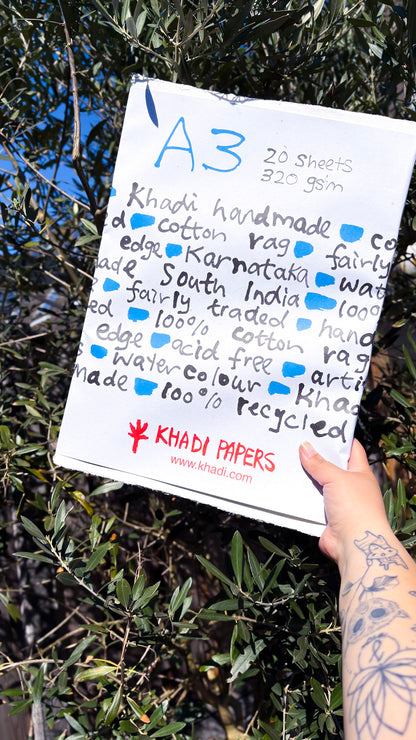 A3
20 sheets
320 gsm
Khadi handmade co
d cotton rag fairly
edge Karnataka wat
ade South India 100%
fairly traded hand
ed 100% cotton rag
edge acid free arti
watercolour Khad
made 100% recycled
KHADI PAPERS
www.khadi.com